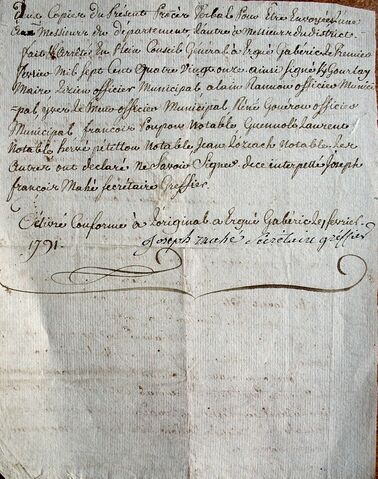 Deux Copies du Présent Procès Verbal Pour Etre Envoyées l'une
a Messieurs du département, l'autre a Messieurs du district.
fait & Arrêté En Plein Conseil General a Ergué Gabéric le Premier
fevrier Mil Sept Cent Quatre Vingt onze ainsi signés
Maire officier Municipal, alain officier Munici
=pal, yves officier Municipal René Gourou officier
Municipal, francois Poupon Notable, Guennolé Laurent
Notable, hervé petillon Notable, Jean Lozach Notable. Les
Autres ont declaré Ne Savoir Signer de ce interpellé Joseph
francois Mahé Secrétaire Greffier.
Délivré Conforme à L'original a Ergué Gabéric le fevrier
1791. Joseph Mahé Secrétaire Greffier